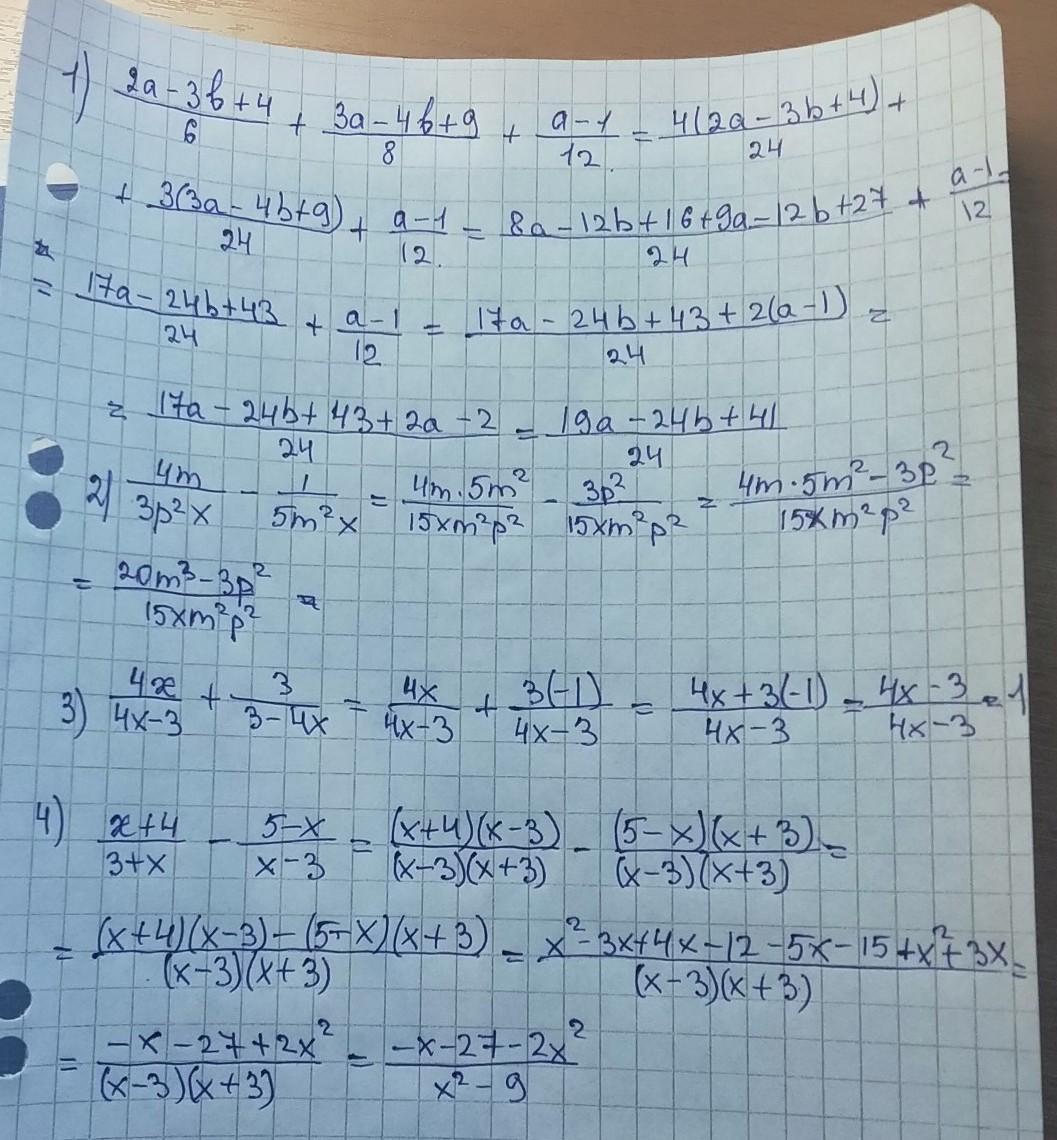 1) (2a-3b+4)/6 + (3a-4b+9)/8 + (a-1)/12 = 4(2a-3b+4)/24 +
+ 3(3a-4b+9)/24 + (a-1)/12 = (8a-12b+16+9a-12b+27)/24 + (a-1)/12 =
= (17a-24b+43)/24 + (a-1)/12 = (17a-24b+43+2(a-1))/24 =
= (17a-24b+43+2a-2)/24 = (19a-24b+41)/24
2) 4m/(3p²x) - 1/(5m²x) = (4m·5m²)/(15xm²p²) - 3p²/(15xm²p²) = (4m·5m²-3p²)/(15xm²p²) =
= (20m³-3p²)/(15xm²p²)
3) 4x/(4x-3) + 3/(3-4x) = 4x/(4x-3) + 3(-1)/(4x-3) = (4x+3(-1))/(4x-3) = (4x-3)/(4x-3) = 1
4) (x+4)/(3+x) - (5-x)/(x-3) = (x+4)(x-3)/((x-3)(x+3)) - (5-x)(x+3)/((x-3)(x+3)) =
= ((x+4)(x-3)-(5-x)(x+3))/((x-3)(x+3)) = (x²-3x+4x-12-5x-15+x²+3x)/((x-3)(x+3)) =
= (-x-27+2x²)/((x-3)(x+3)) = (-x-27-2x²)/(x²-9)